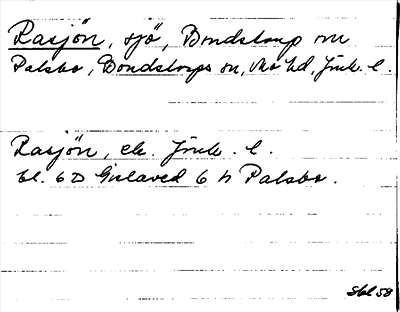 Rasjön, sjö, Bondstorp sn
Palsbo, Bondstorps sn, Mo hd, Jönk. l.
Rasjön, ek. Jönk. l.
bl. 6 D Gislaved 6 h Palsbo.
Sbl 58